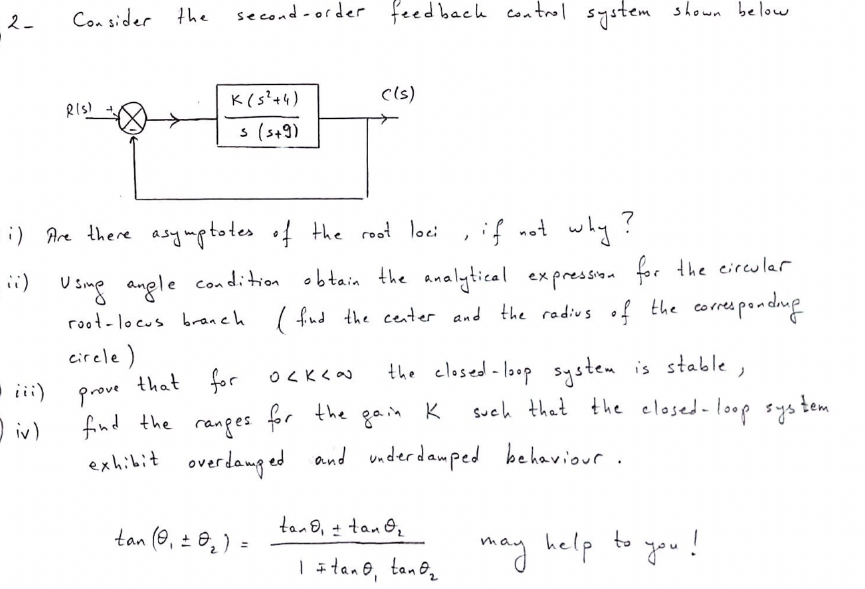 2- Consider the second-order feedback control system shown below
R(s) + K(s²+4) C(s)
- s (s+9)
i) Are there asymptotes of the root loci , if not why ?
ii) Using angle condition obtain the analytical expression for the circular
root-locus branch ( find the center and the radius of the corresponding
circle )
iii) prove that for 0<K<∞ the closed-loop system is stable ,
iv) find the ranges for the gain K such that the closed-loop system
exhibit overdamped and underdamped behaviour .
tan (θ₁ ± θ₂) = tanθ₁ ± tanθ₂ may help to you !
1 ∓ tanθ₁ tanθ₂